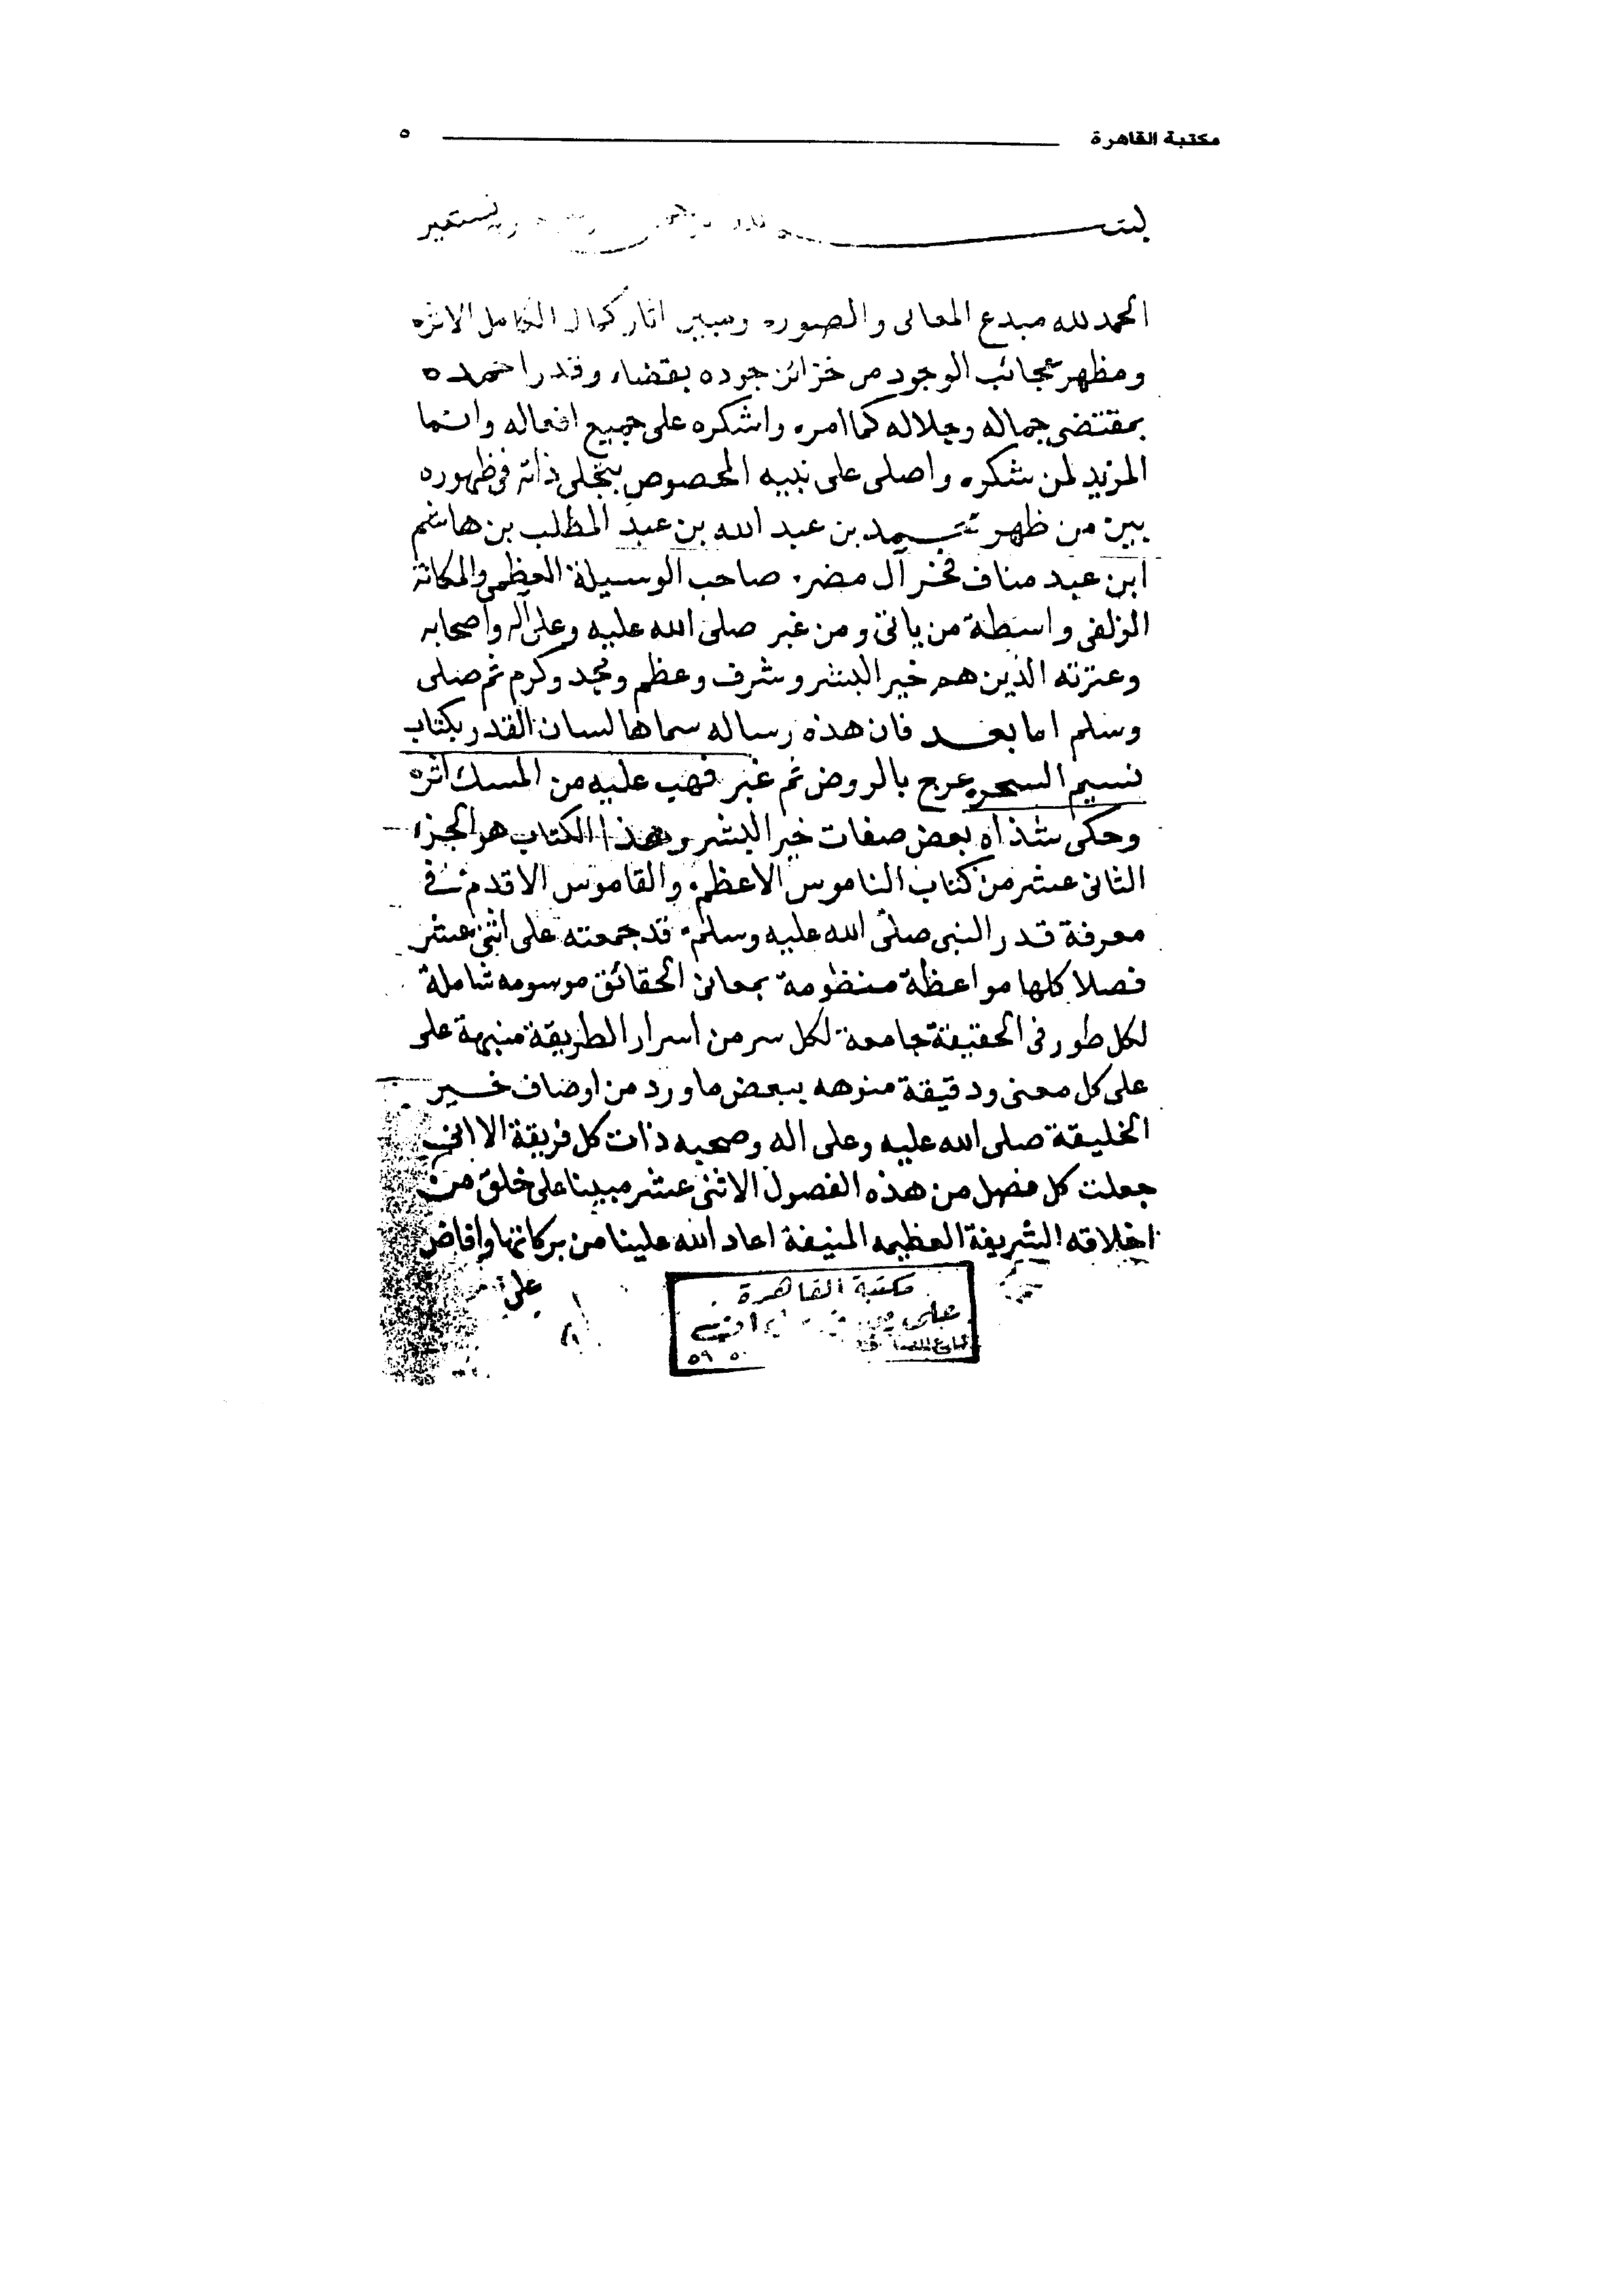 مكتبة القاهرة ٥
بسم الله وبه نستعين
الحمد لله مبدع المعانى والصوره ومبين اثار كمال الكامل الاثره
ومظهر عجائب الوجود من خزائن جوده بقضاء وقدر احمده
بمقتضى جماله وجلاله كما امره واشكره على جميع افعاله وانما
المزيد لمن شكره واصلى على نبيه المخصوص بتجلى ذاته فى ظهوره
بين من ظهر محمد بن عبد الله بن عبد المطلب بن هاشم
ابن عبد مناف فخر آل مضر. صاحب الوسيلة العظمى والمكانة
الزلفى واسطة من ياتى ومن غبر صلى الله عليه وعلى آله واصحابه
وعترته الذين هم خير البشر وشرف وعظم ومجد وكرم ثم صلى
وسلم اما بعد فان هذه رساله سماها لسان القدر بكتاب
نسيم السحره عرج بالروض ثم غبر فهب عليه من المسك اثره
وحكى شذاه بعض صفات خير البشر وهذا الكتاب هو الجزء
الثانى عشر من كتاب الناموس الاعظم والقاموس الاقدم فى
معرفة قدر النبى صلى الله عليه وسلم قد جمعته على اثنى عشر
فصلا كلها مواعظة منظومة بمعانى الحقائق موسومه شاملة
لكل طور فى الحقيقة جامعة لكل سر من اسرار الطريقة منبهة على
على كل معنى ودقيقة منوهه ببعض ما ورد من اوصاف خير
الخليقة صلى الله عليه وعلى اله وصحبه ذات كل فريقة الا انى
جعلت كل فصل من هذه الفصول الاثنى عشر مبينا على خلق من
اخلاقه الشريفة العظيمه المنيفة اعاد الله علينا من بركاتها وافاض
على
مكتبة القاهرة
على
٥٩ ٥٠